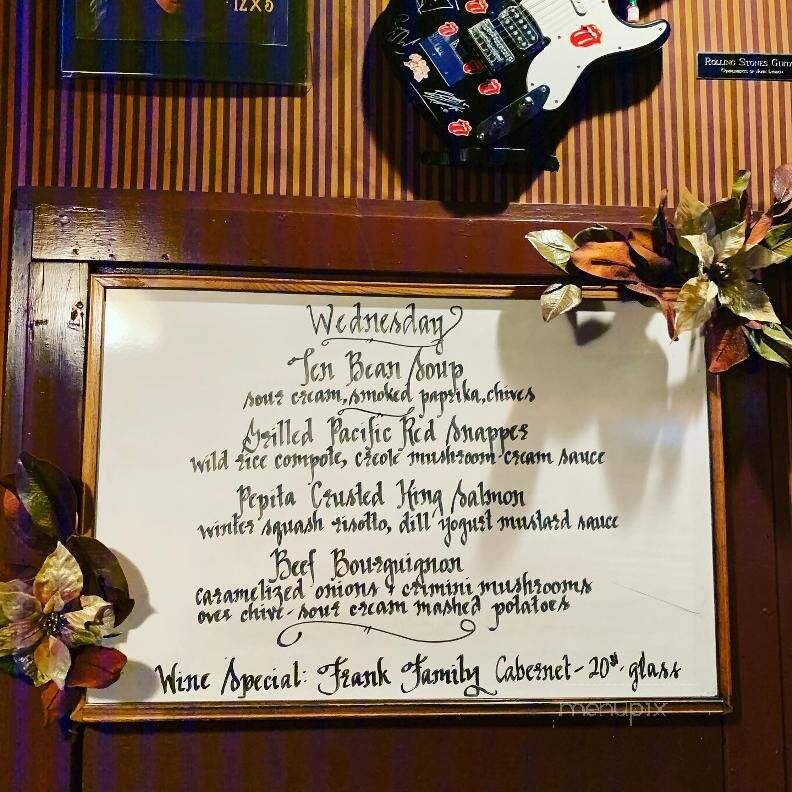 12x5
ROLLING STONES GUITA
Wednesday
Ten Bean Soup
sour cream, smoked paprika, chives
Grilled Pacific Red Snapper
wild rice compote, creole mushroom cream sauce
Pepita Crusted King Salmon
winter squash risotto, dill yogurt mustard sauce
Beef Bourguignon
caramelized onions & crimini mushrooms
over chive-sour cream mashed potatoes
Wine Special: Frank Family Cabernet - 20⁰⁰ - glass
menupix